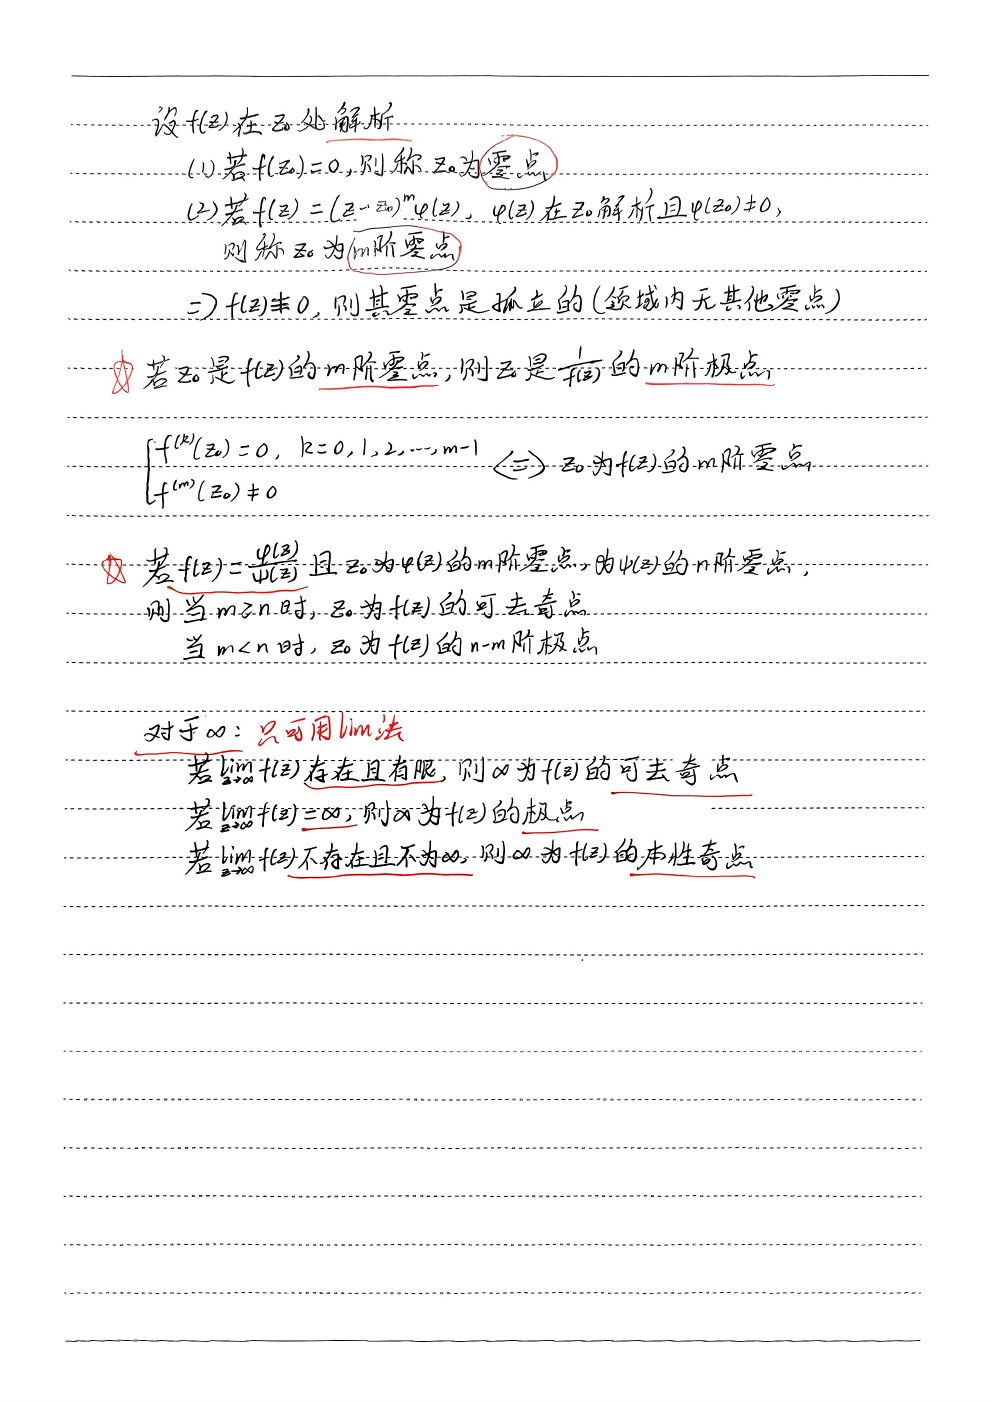 设 f(z) 在 z₀ 处解析
(1) 若 f(z₀) = 0, 则称 z₀ 为零点
(2) 若 f(z) = (z - z₀)ᵐ φ(z), φ(z) 在 z₀ 解析且 φ(z₀) ≠ 0,
则称 z₀ 为 m阶零点
=> f(z) ≢ 0, 则其零点是孤立的 (领域内无其他零点)
☆ 若 z₀ 是 f(z) 的 m阶零点, 则 z₀ 是 1/f(z) 的 m阶极点
{ f⁽ᵏ⁾(z₀) = 0, k = 0, 1, 2, ..., m-1
f⁽ᵐ⁾(z₀) ≠ 0 <=> z₀ 为 f(z) 的 m阶零点
☆ 若 f(z) = φ(z)/ψ(z) 且 z₀ 为 φ(z) 的 m阶零点, 为 ψ(z) 的 n阶零点,
则 当 m ≥ n 时, z₀ 为 f(z) 的可去奇点
当 m < n 时, z₀ 为 f(z) 的 n-m 阶极点
对于 ∞: 只可用 lim 法
若 lim z→∞ f(z) 存在且有限, 则 ∞ 为 f(z) 的可去奇点
若 lim z→∞ f(z) = ∞, 则 ∞ 为 f(z) 的极点
若 lim z→∞ f(z) 不存在且不为 ∞, 则 ∞ 为 f(z) 的本性奇点